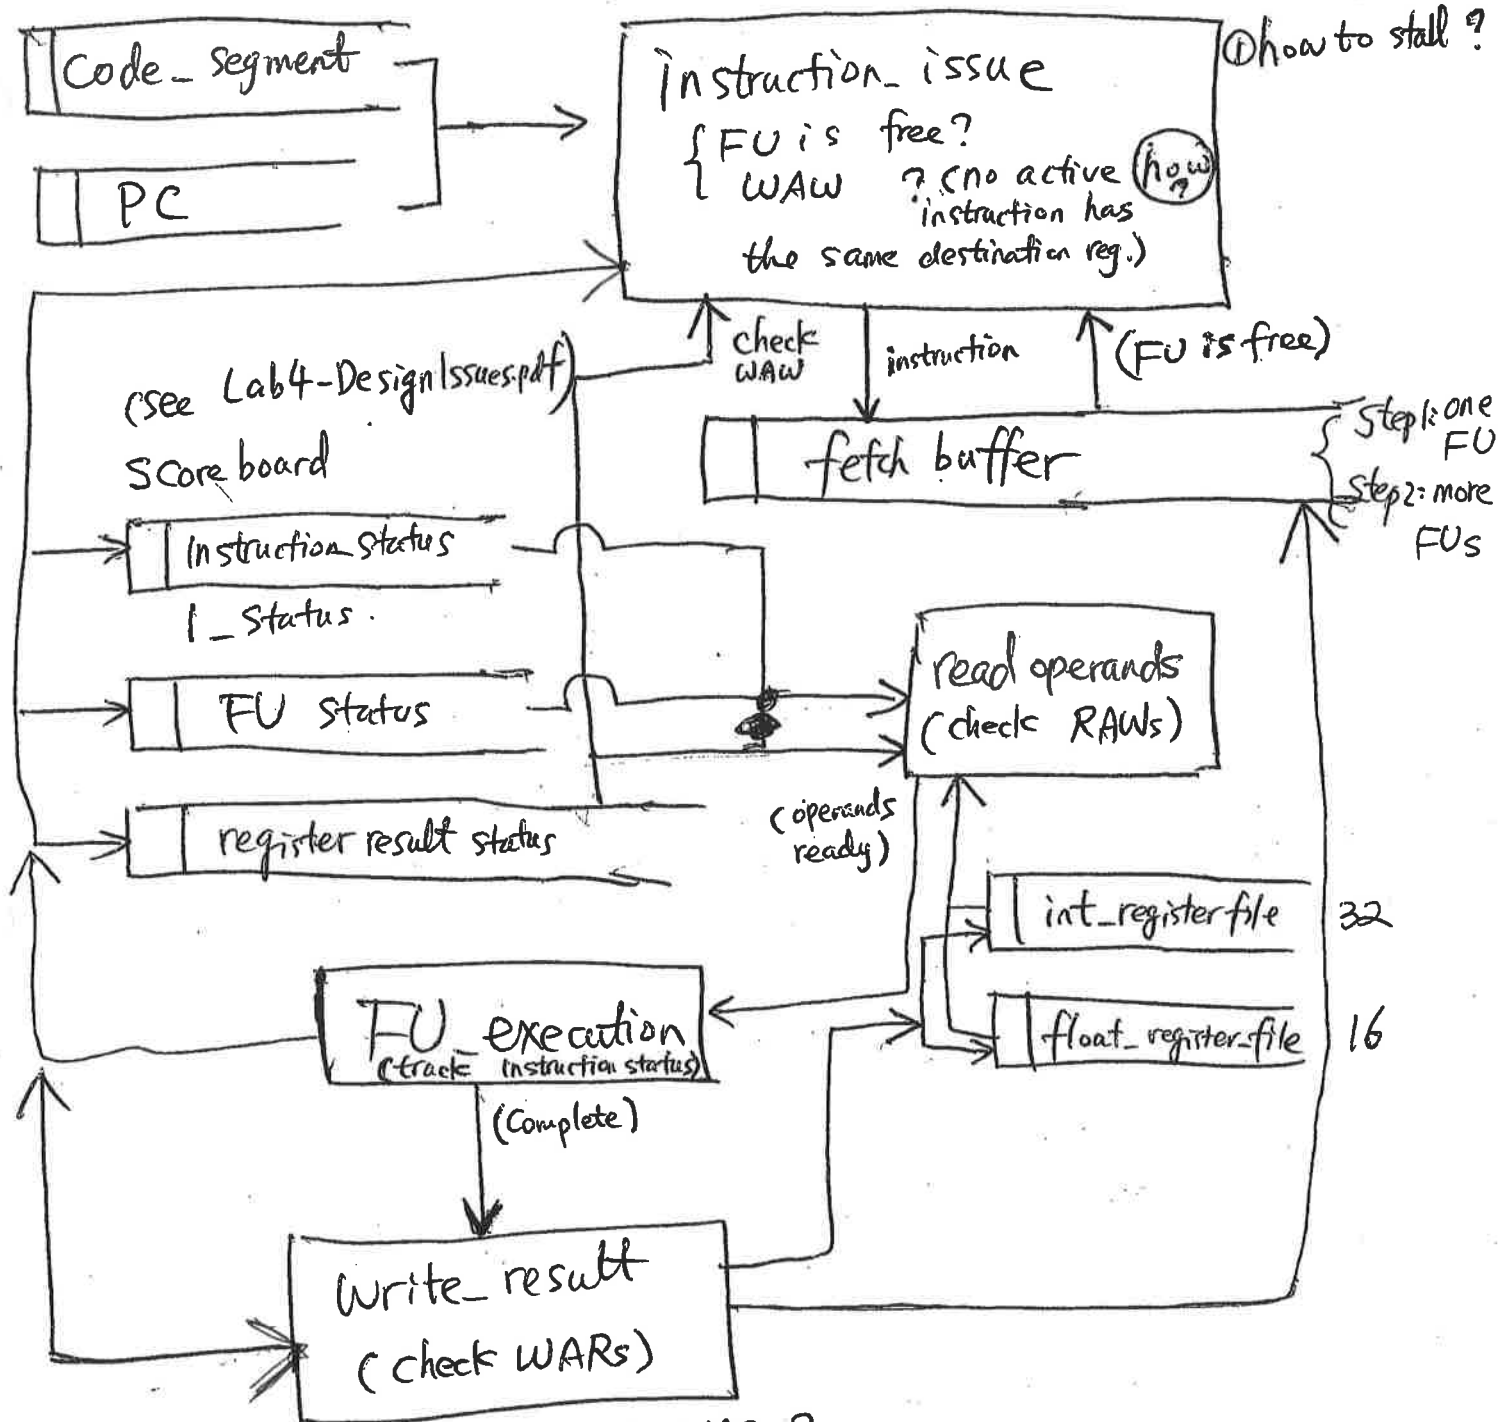 Code_segment
PC
instruction_issue
FU is free?
WAW ? (no active
instruction has
the same destination reg.)
how
?
① how to stall ?
check
WAW
instruction
(FU is free)
(see Lab4-DesignIssues.pdf)
Scoreboard
fetch buffer
Step1: one
FU
Step2: more
FUs
Instruction_status
I_status.
FU status
register result status
read operands
(check RAWs)
(operands
ready)
int_registerfile
32
float_register_file
16
FU_execution
(track instruction status)
(Complete)
Write_result
(check WARs)